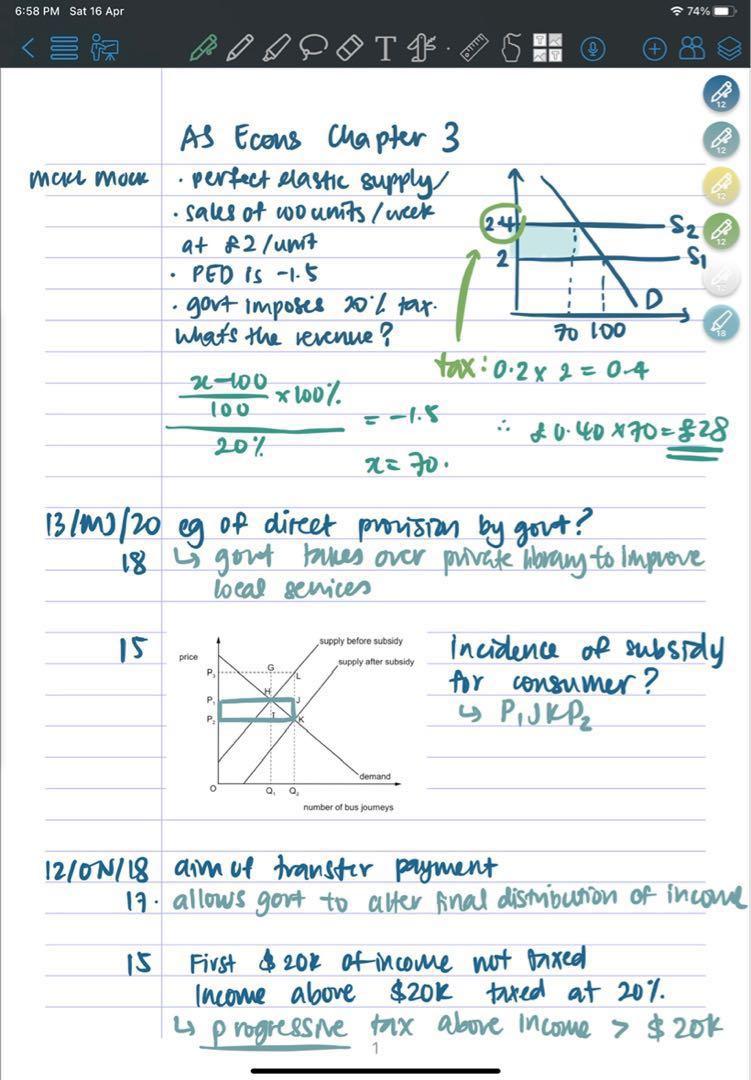 6:58 PM Sat 16 Apr
74%
AS Econs Chapter 3
MCKL MOCK
• perfect elastic supply
• sales of 100 units/week
at £2/unit
• PED is -1.5
• govt imposes 20% tax.
What's the revenue?
2.4
2
S2
S1
D
70 100
tax: 0.2 x 2 = 0.4
x-100
100
x 100%
20%
= -1.5
x = 70.
∴ £0.40 x 70 = £28
13/MJ/20 eg of direct provision by govt?
18 ↳ govt takes over private library to improve
local services
15
price
supply before subsidy
supply after subsidy
P3
G
L
P1
H
J
P2
I
K
demand
O
Q1 Q2
number of bus journeys
Incidence of subsidy
for consumer?
↳ P1JKP2
12/ON/18 aim of transfer payment
17. allows govt to alter final distribution of income
15 First $20k of income not taxed
Income above $20k taxed at 20%.
↳ progressive tax above income > $20k
1